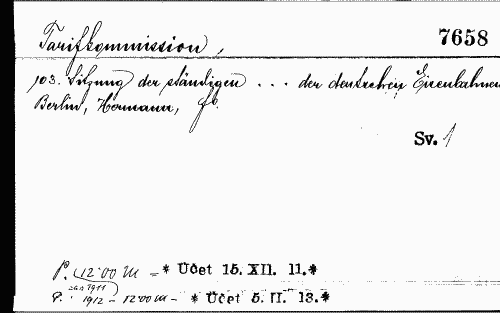 7658
Tarifkommission,
103. Sitzung der ständigen ... der deutschen Eisenbahnen
Berlin, Hermann, f°.
Sv. 1
P. 12·00 M – * Účet 15. XII. 11.*
1911
P. 1912 – 12·00 M – * Účet 5. II. 13.*